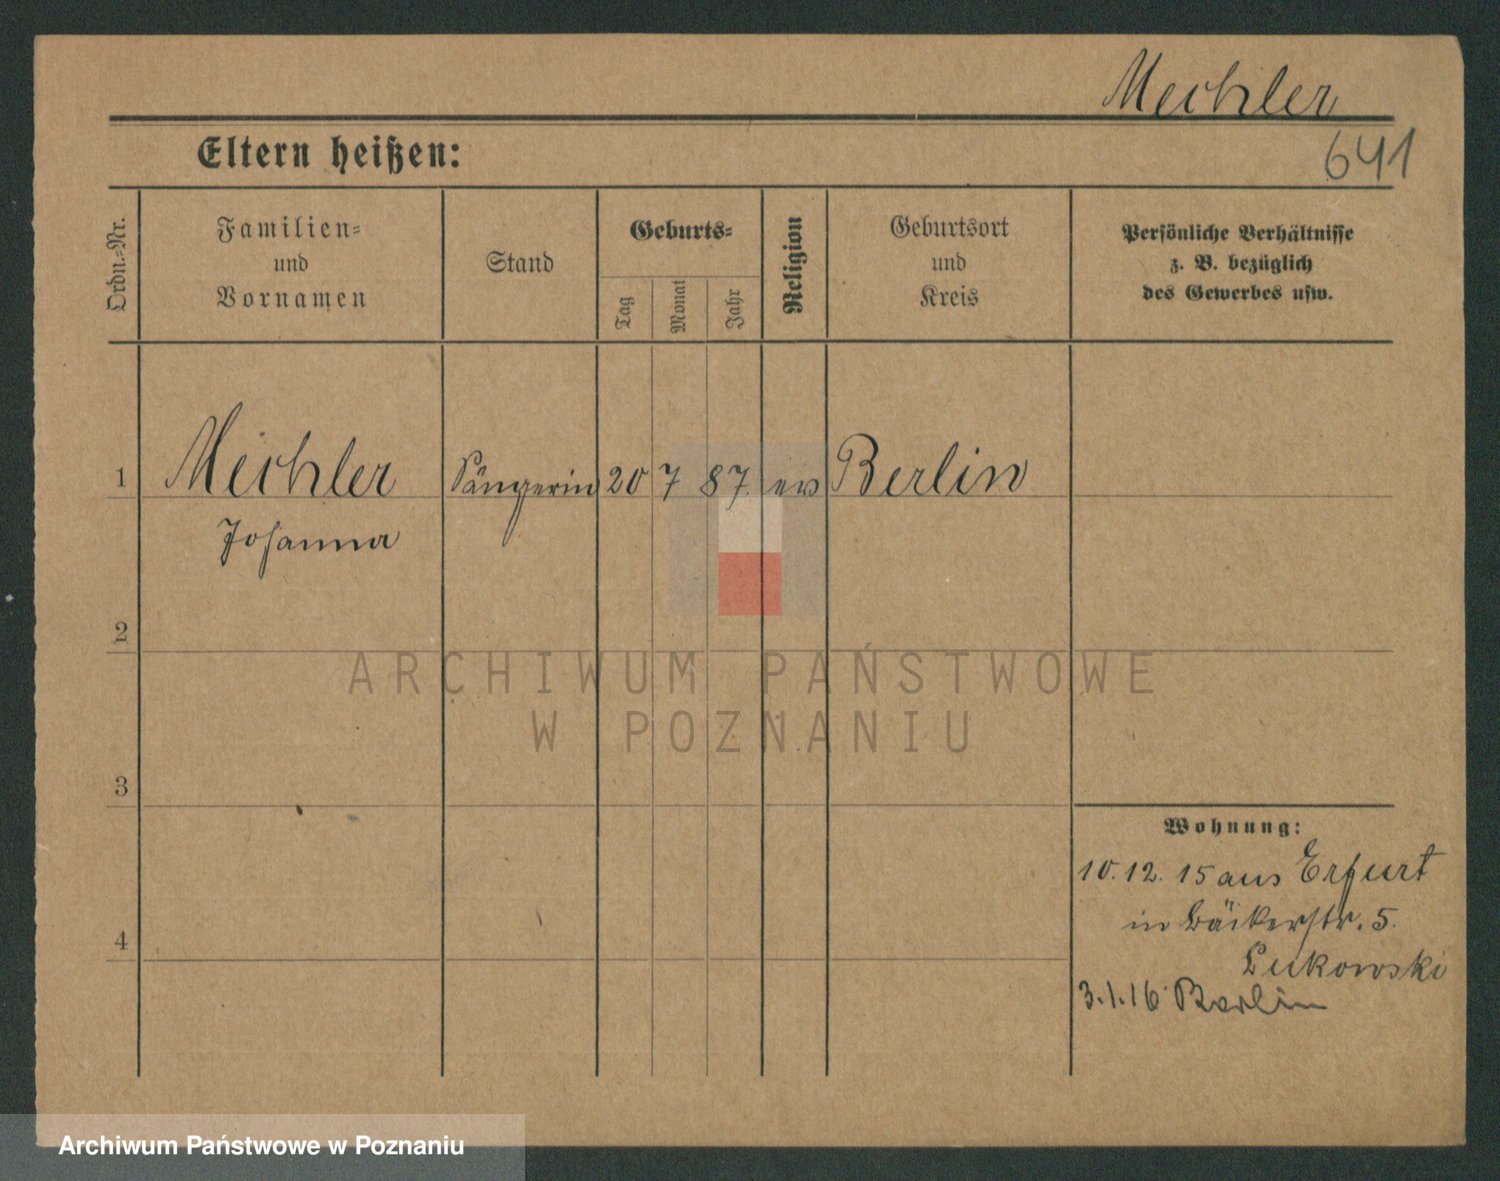 Mechler
641
Eltern heißen:
Ordn.-Nr.
Familien-
und
Vornamen
Stand
Geburts-
Tag
Monat
Jahr
Religion
Geburtsort
und
Kreis
Persönliche Verhältnisse
z. B. bezüglich
des Gewerbes usw.
1 Mechler Sängerin 20 7 87. ev Berlin
Johanna
2
ARCHIWUM PAŃSTWOWE
W POZNANIU
3
Wohnung:
10.12.15 aus Erfurt
in Bäckerstr. 5.
Lukowski
4
3.1.16 Berlin
Archiwum Państwowe w Poznaniu